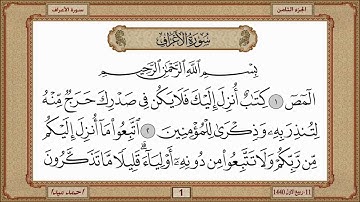 الجزء الثامن
سورة الأعراف
سُورَةُ الْأَعْرَافِ
بِسْمِ اللَّهِ الرَّحْمَٰنِ الرَّحِيمِ
الٓمٓصٓ ١ كِتَٰبٌ أُنزِلَ إِلَيْكَ فَلَا يَكُن فِى صَدْرِكَ حَرَجٌ مِّنْهُ
لِتُنذِرَ بِهِۦ وَذِكْرَىٰ لِلْمُؤْمِنِينَ ٢ ٱتَّبِعُوا۟ مَآ أُنزِلَ إِلَيْكُم
مِّن رَّبِّكُمْ وَلَا تَتَّبِعُوا۟ مِن دُونِهِۦٓ أَوْلِيَآءَ ۗ قَلِيلًا مَّا تَذَكَّرُونَ
11- ربيع الأول 1440
1